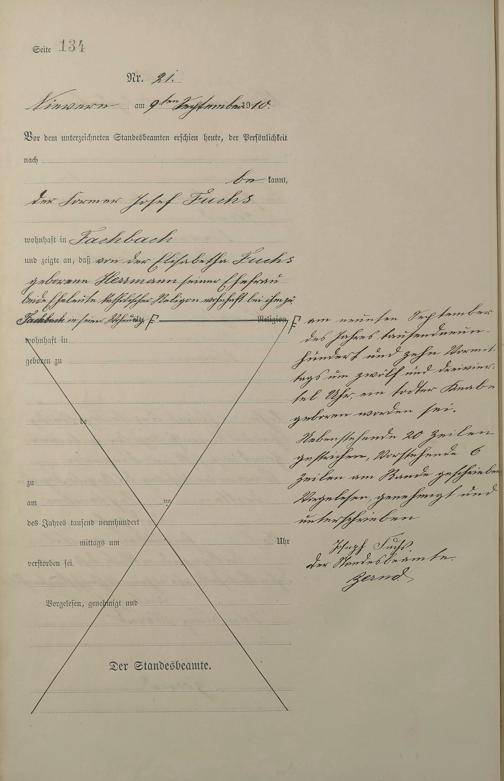 Seite 134
Nr. 21.
Nievern am 9ten September 1910.
Vor dem unterzeichneten Standesbeamten erschien heute, der Persönlichkeit
nach
be kannt,
der Former Josef Fuchs
wohnhaft in Fachbach
und zeigte an, daß von der Elisabetha Fuchs
geborene Herrmann seiner Ehefrau
beide Eheleute katholischer Religion wohnhaft bei ihm zu
Fachbach in seiner Wohnung F Religion,
wohnhaft in
geboren zu
zu
zu
am um
des Jahres tausend neunhundert
mittags um Uhr
verstorben sei.
Vorgelesen, genehmigt und
Der Standesbeamte.
F am neunten September
des Jahres tausendneun-
hundert und zehn Vormit
tags um zwölf und dreivier-
tel Uhr ein todter Knabe
geboren worden sei.
Nebenstehende 20 Zeilen
gestrichen, Vorstehende 6
Zeilen am Rande geschrieben
Vorgelesen, genehmigt und
unterschrieben
Joseph Fuchs
der Standesbeamte.